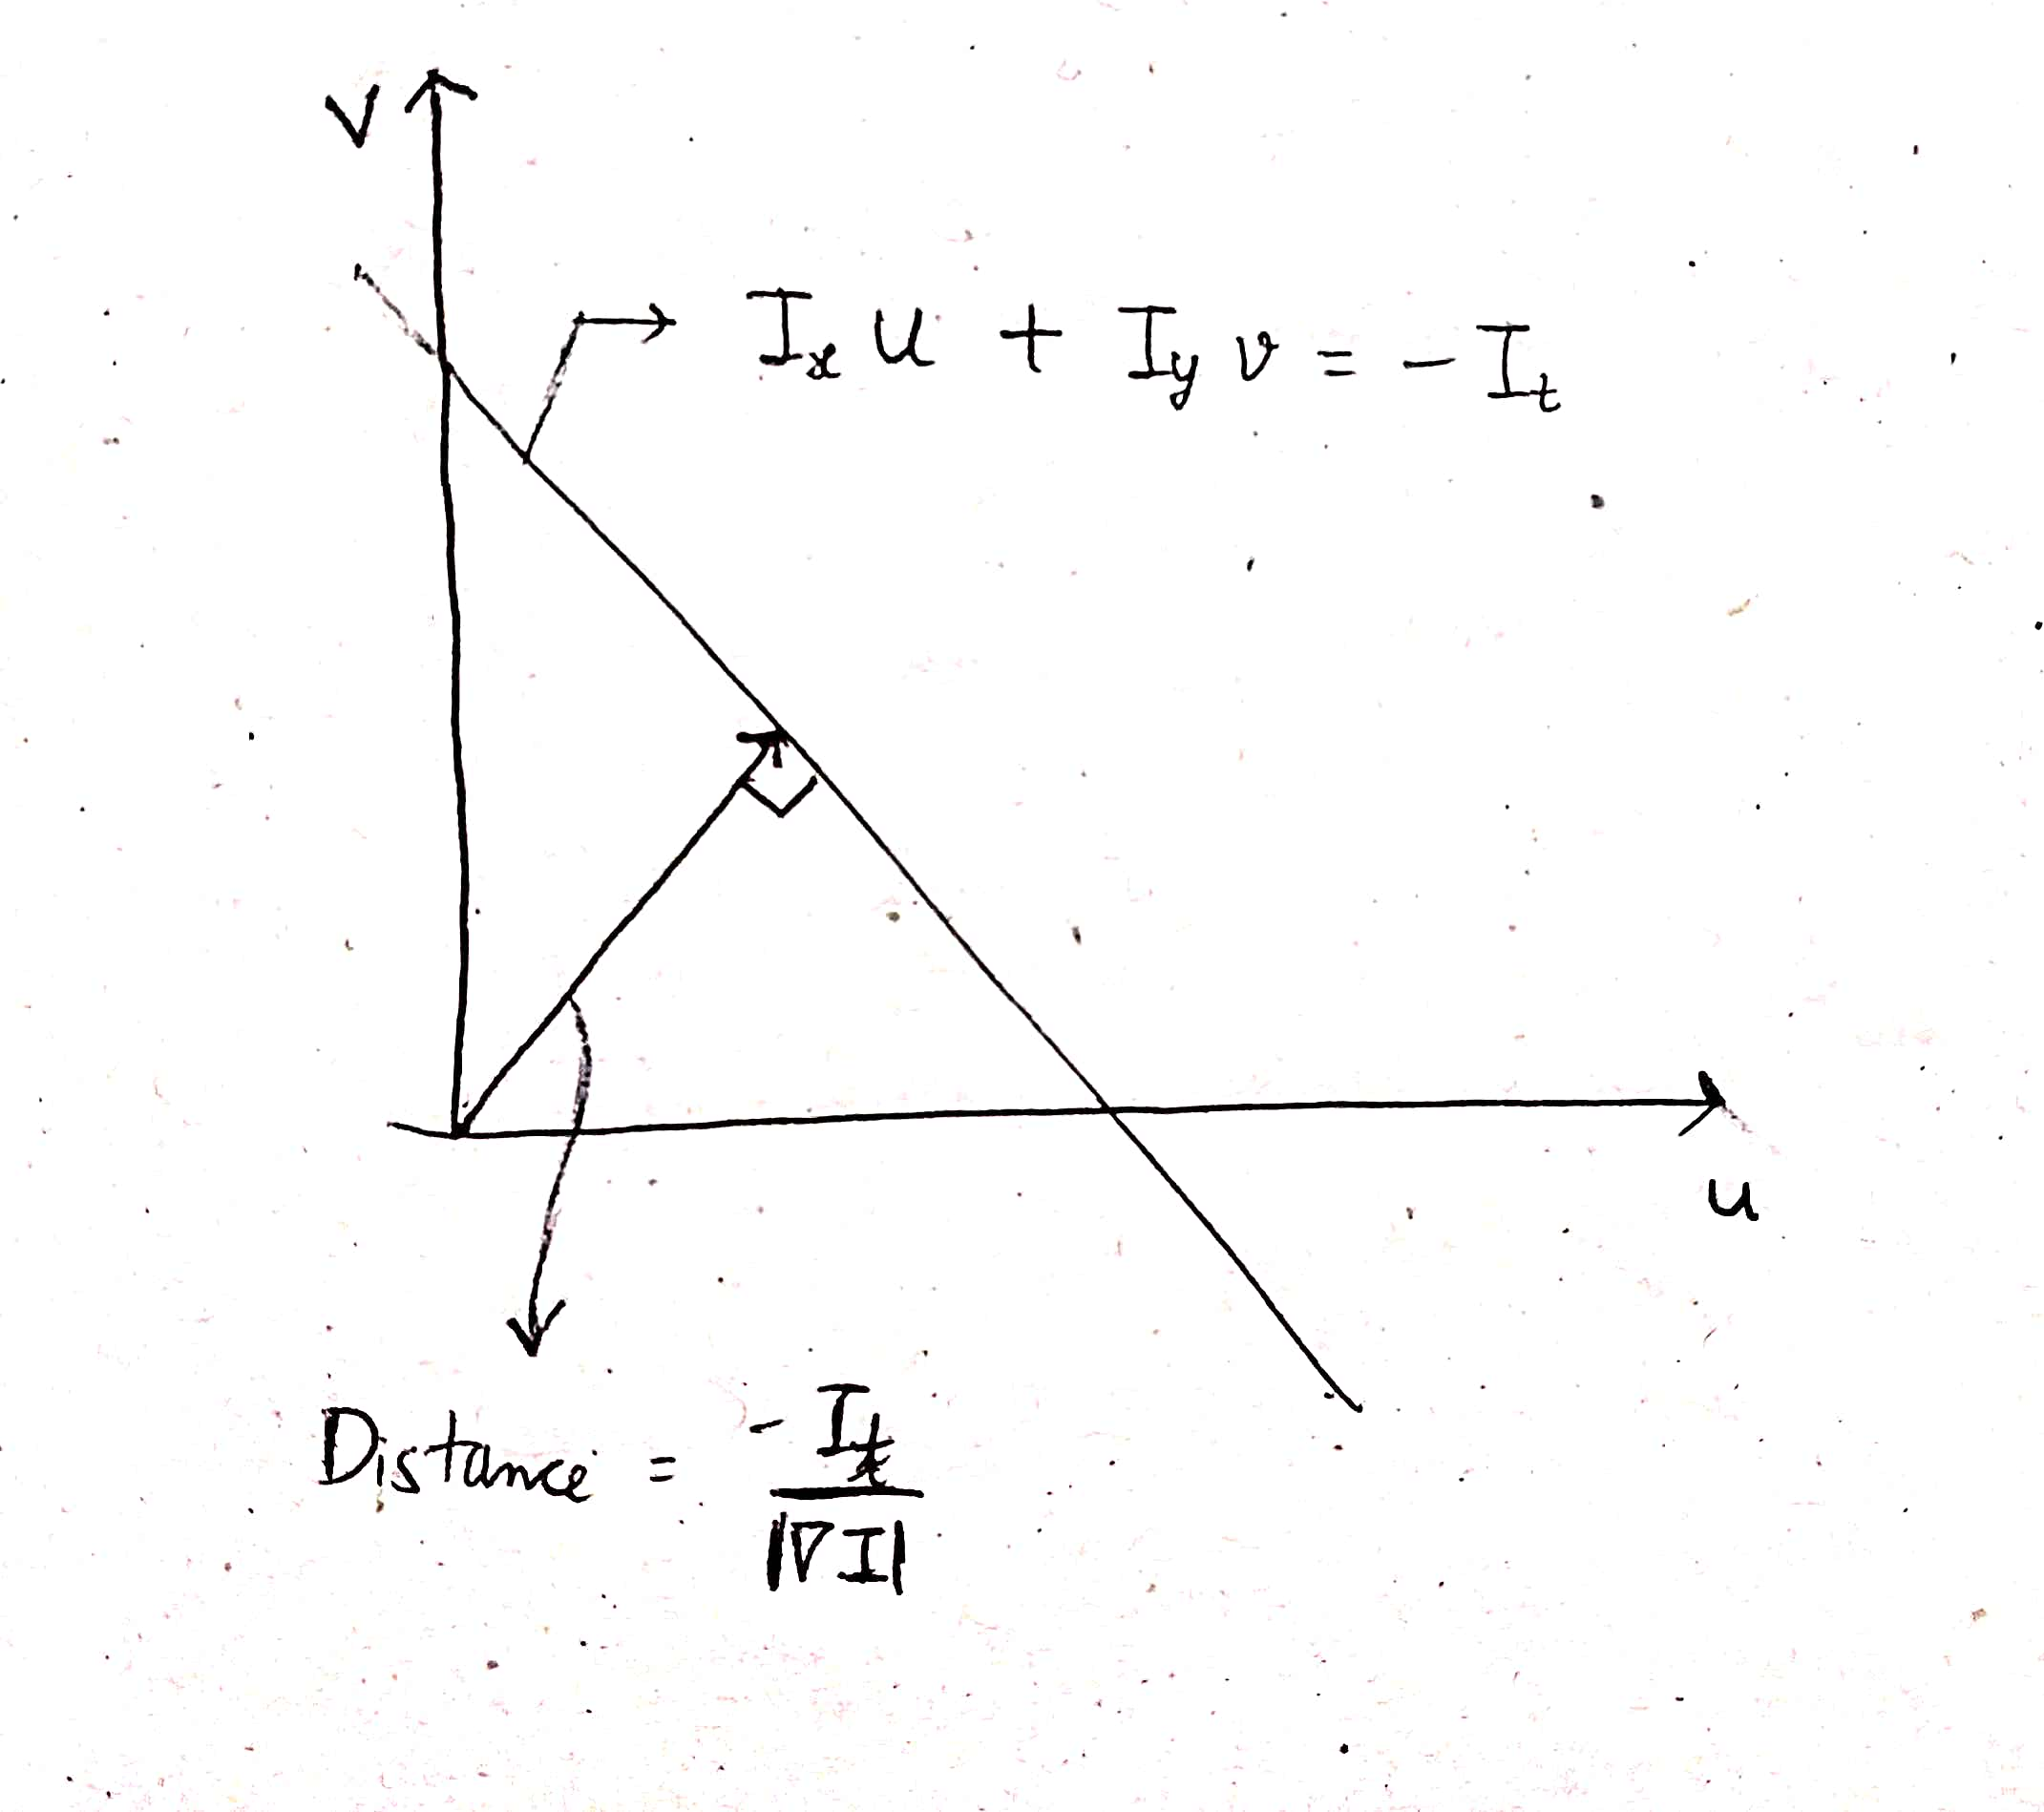 V
Iₓ u + I_y v = - I_t
u
Distance = - I_t / |∇I|